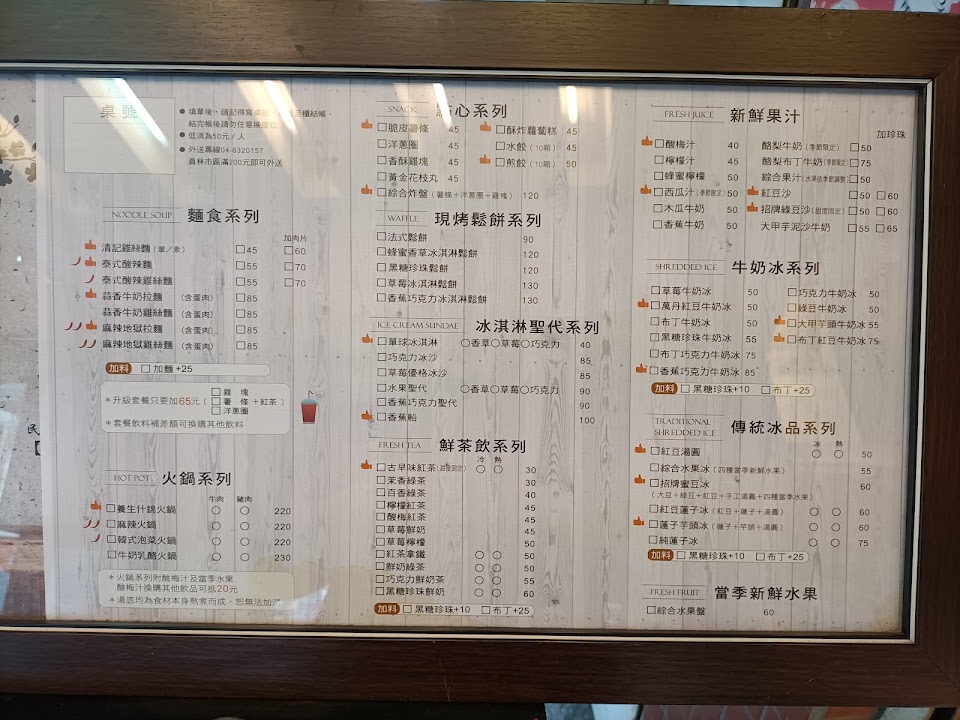 桌號
● 填單後，請記得寫桌號
結完帳後請勿任意換座位
● 低消為50元／人
● 外送專線04-8320157
員林市區滿200元即可外送
NOODLE SOUP 麵食系列
加肉片
清記雞絲麵（葷／素） □45 □60
泰式酸辣麵 □55 □70
泰式酸辣雞絲麵 □55 □70
蒜香牛奶拉麵 （含蛋肉） □85
蒜香牛奶雞絲麵 （含蛋肉） □85
麻辣地獄拉麵 （含蛋肉） □85
麻辣地獄雞絲麵 （含蛋肉） □85
加料 □加麵+25
＊升級套餐只要加65元（ □雞 塊
□薯 條 ＋紅茶 ）
□洋蔥圈
＊套餐飲料補差額可換購其他飲料
HOT POT 火鍋系列
牛肉 豬肉
□養生什錦火鍋 ○ ○ 220
□麻辣火鍋 ○ ○ 220
□韓式泡菜火鍋 ○ ○ 220
□牛奶乳酪火鍋 ○ ○ 230
＊火鍋系列附酸梅汁及當季水果
酸梅汁換購其他飲品可抵20元
＊湯底均為食材本身熬煮而成，恕無法加湯
SNACK 點心系列
□脆皮薯條 45 □酥炸蘿蔔糕 45
□洋蔥圈 45 □水餃（10顆） 45
□香酥雞塊 45 □煎餃（10顆） 45
□黃金花枝丸 45
□綜合炸盤（薯條＋洋蔥圈＋雞塊） 120
WAFFLE 現烤鬆餅系列
□法式鬆餅 90
□蜂蜜香草冰淇淋鬆餅 120
□黑糖珍珠鬆餅 120
□草莓冰淇淋鬆餅 130
□香蕉巧克力冰淇淋鬆餅 130
ICE CREAM SUNDAE 冰淇淋聖代系列
□單球冰淇淋 ○香草○草莓○巧克力 40
□巧克力冰沙 85
□草莓優格冰沙 85
□水果聖代 ○香草○草莓○巧克力 90
□香蕉巧克力聖代 90
□香蕉船 100
FRESH TEA 鮮茶飲系列
冷 熱
□古早味紅茶（甜度固定） ○ ○ 30
□茉香綠茶 30
□百香綠茶 40
□檸檬紅茶 45
□酸梅紅茶 45
□草莓鮮奶 45
□草莓檸檬 50
□紅茶拿鐵 ○ ○ 50
□鮮奶綠茶 ○ ○ 50
□巧克力鮮奶茶 ○ ○ 55
□黑糖珍珠鮮奶 ○ ○ 60
加料 □黑糖珍珠+10 □布丁+25
FRESH JUICE 新鮮果汁
加珍珠
□酸梅汁 40 酪梨牛奶（季節限定） □50
□檸檬汁 45 酪梨布丁牛奶（季節限定） □75
□蜂蜜檸檬 50 綜合果汁（水果依季節調整） □50
□西瓜汁（季節限定） 50 紅豆沙 □50 □60
□木瓜牛奶 50 招牌綠豆沙（甜度固定） □50 □60
□香蕉牛奶 50 大甲芋泥沙牛奶 □55 □65
SHREDDED ICE 牛奶冰系列
□草莓牛奶冰 50 □巧克力牛奶冰 50
□萬丹紅豆牛奶冰 50 □綠豆牛奶冰 50
□布丁牛奶冰 50 □大甲芋頭牛奶冰 55
□黑糖珍珠牛奶冰 55 □布丁紅豆牛奶冰 75
□布丁巧克力牛奶冰 75
□香蕉巧克力牛奶冰 85
加料 □黑糖珍珠+10 □布丁+25
TRADITIONAL SHREDDED ICE 傳統冰品系列
冰 熱
□紅豆湯圓 ○ ○ 50
□綜合水果冰（四種當季新鮮水果） 55
□招牌蜜豆冰 60
（大豆＋綠豆＋紅豆＋手工湯圓＋四種當季水果）
□紅豆蓮子冰（紅豆＋蓮子＋湯圓） ○ ○ 60
□蓮子芋頭冰（蓮子＋芋頭＋湯圓） ○ ○ 60
□純蓮子冰 ○ ○ 75
加料 □黑糖珍珠+10 □布丁+25
FRESH FRUIT 當季新鮮水果
□綜合水果盤 60